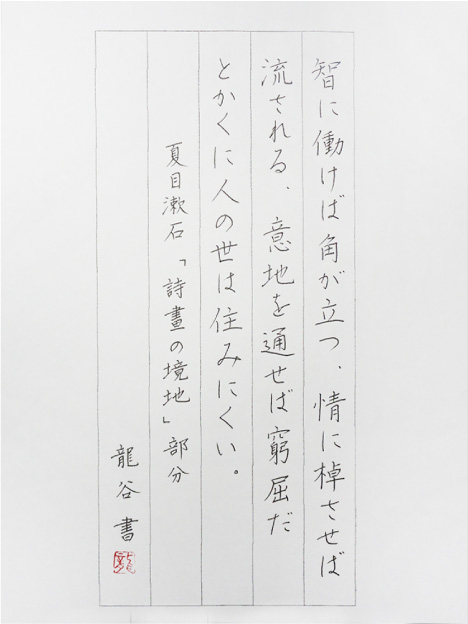 智に働けば角が立つ、情に棹させば
流される、意地を通せば窮屈だ
とかくに人の世は住みにくい。
夏目漱石「詩畫の境地」部分
龍谷書
龍